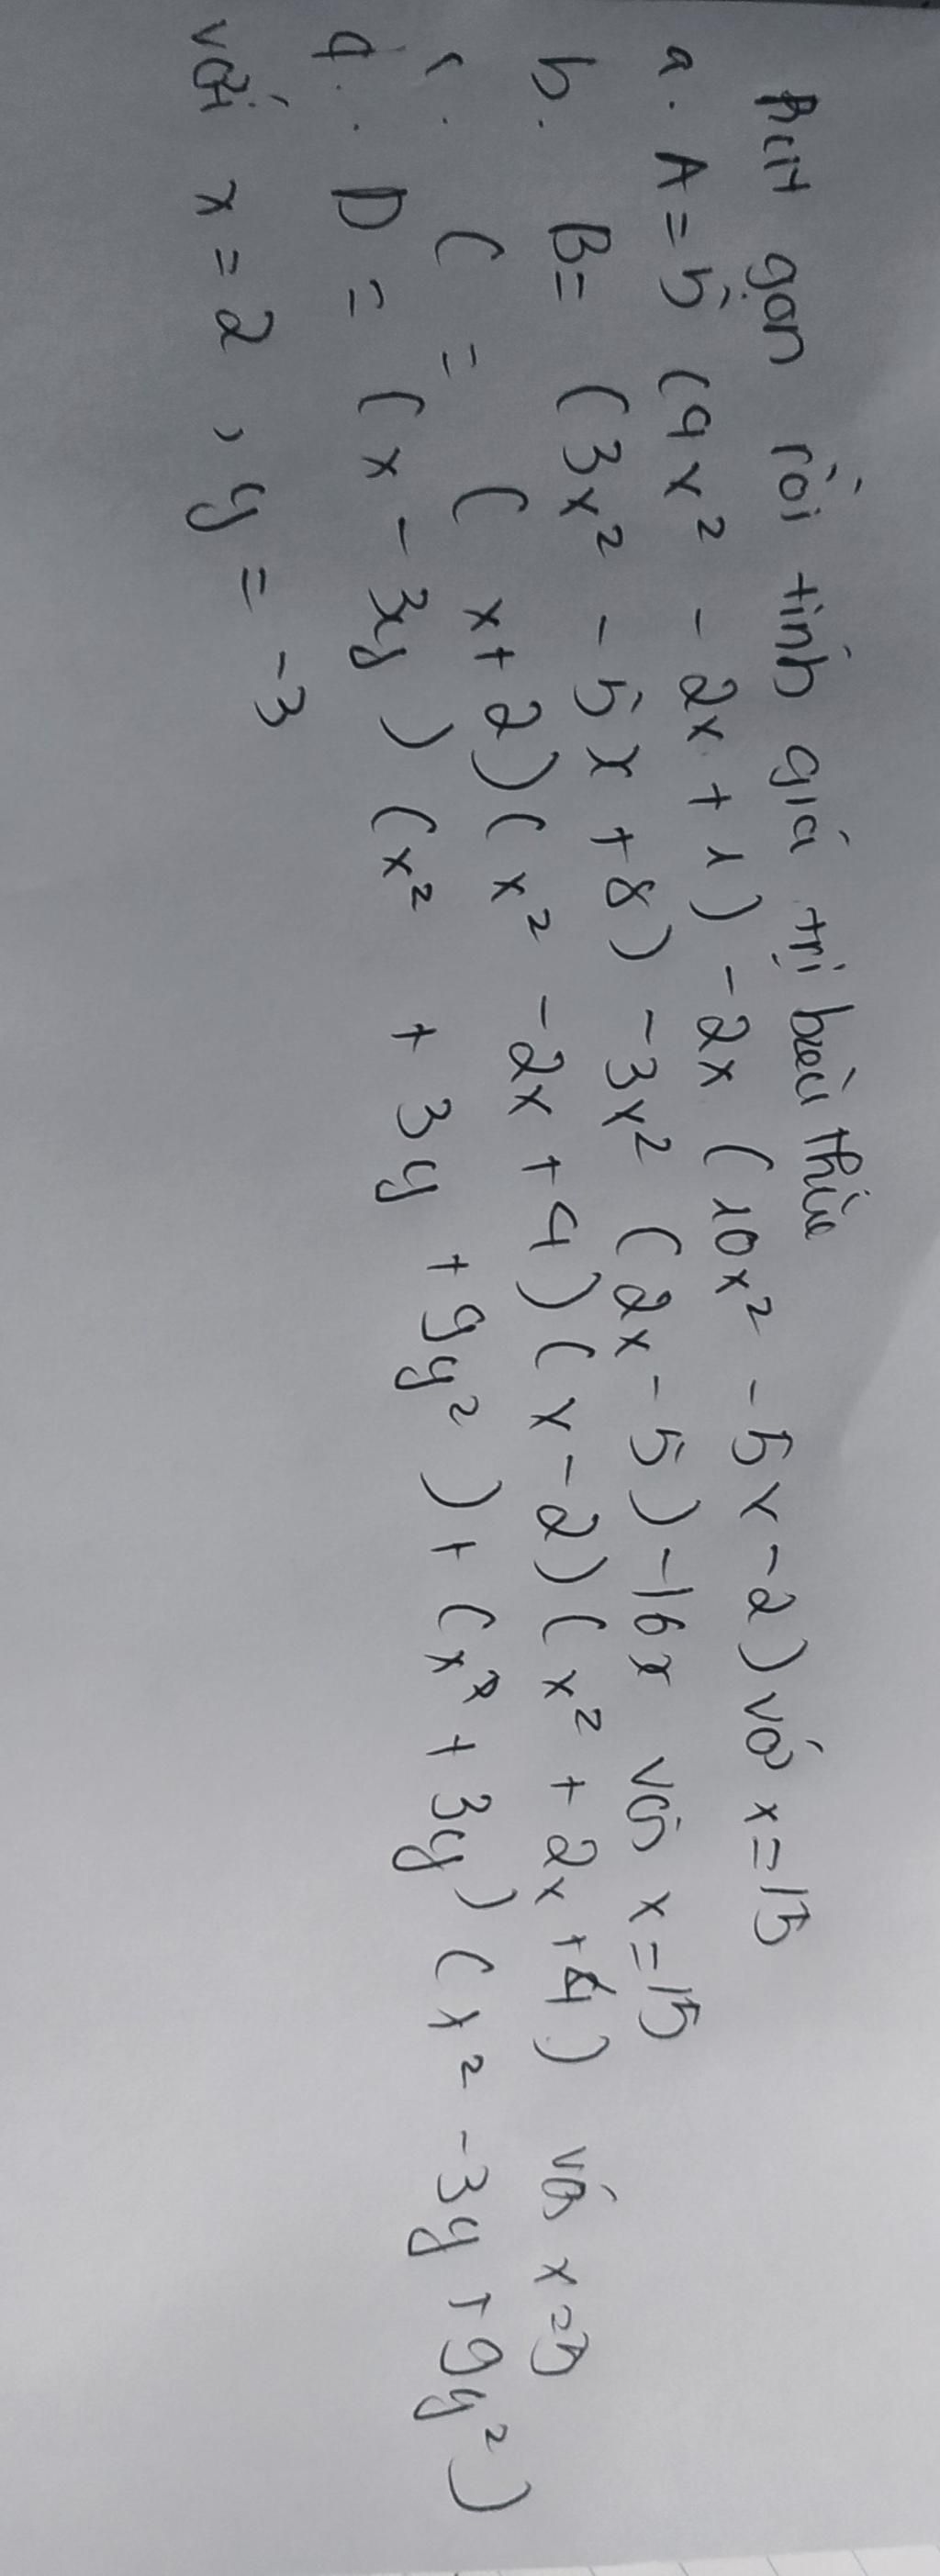 Rút gọn rồi tính giá trị biểu thức
a. A = 5 (4x² - 2x + 1) - 2x (10x² - 5x - 2) với x = 15
b. B = (3x² - 5x + 8) - 3x² (2x - 5) - 16x với x = 15
c. C = (x + 2)(x² - 2x + 4)(x - 2)(x² + 2x + 4) với x = 5
d. D = (x - 3y) (x² + 3y + 9y²) + (x + 3y) (x² - 3y + 9y²)
với x = 2, y = -3